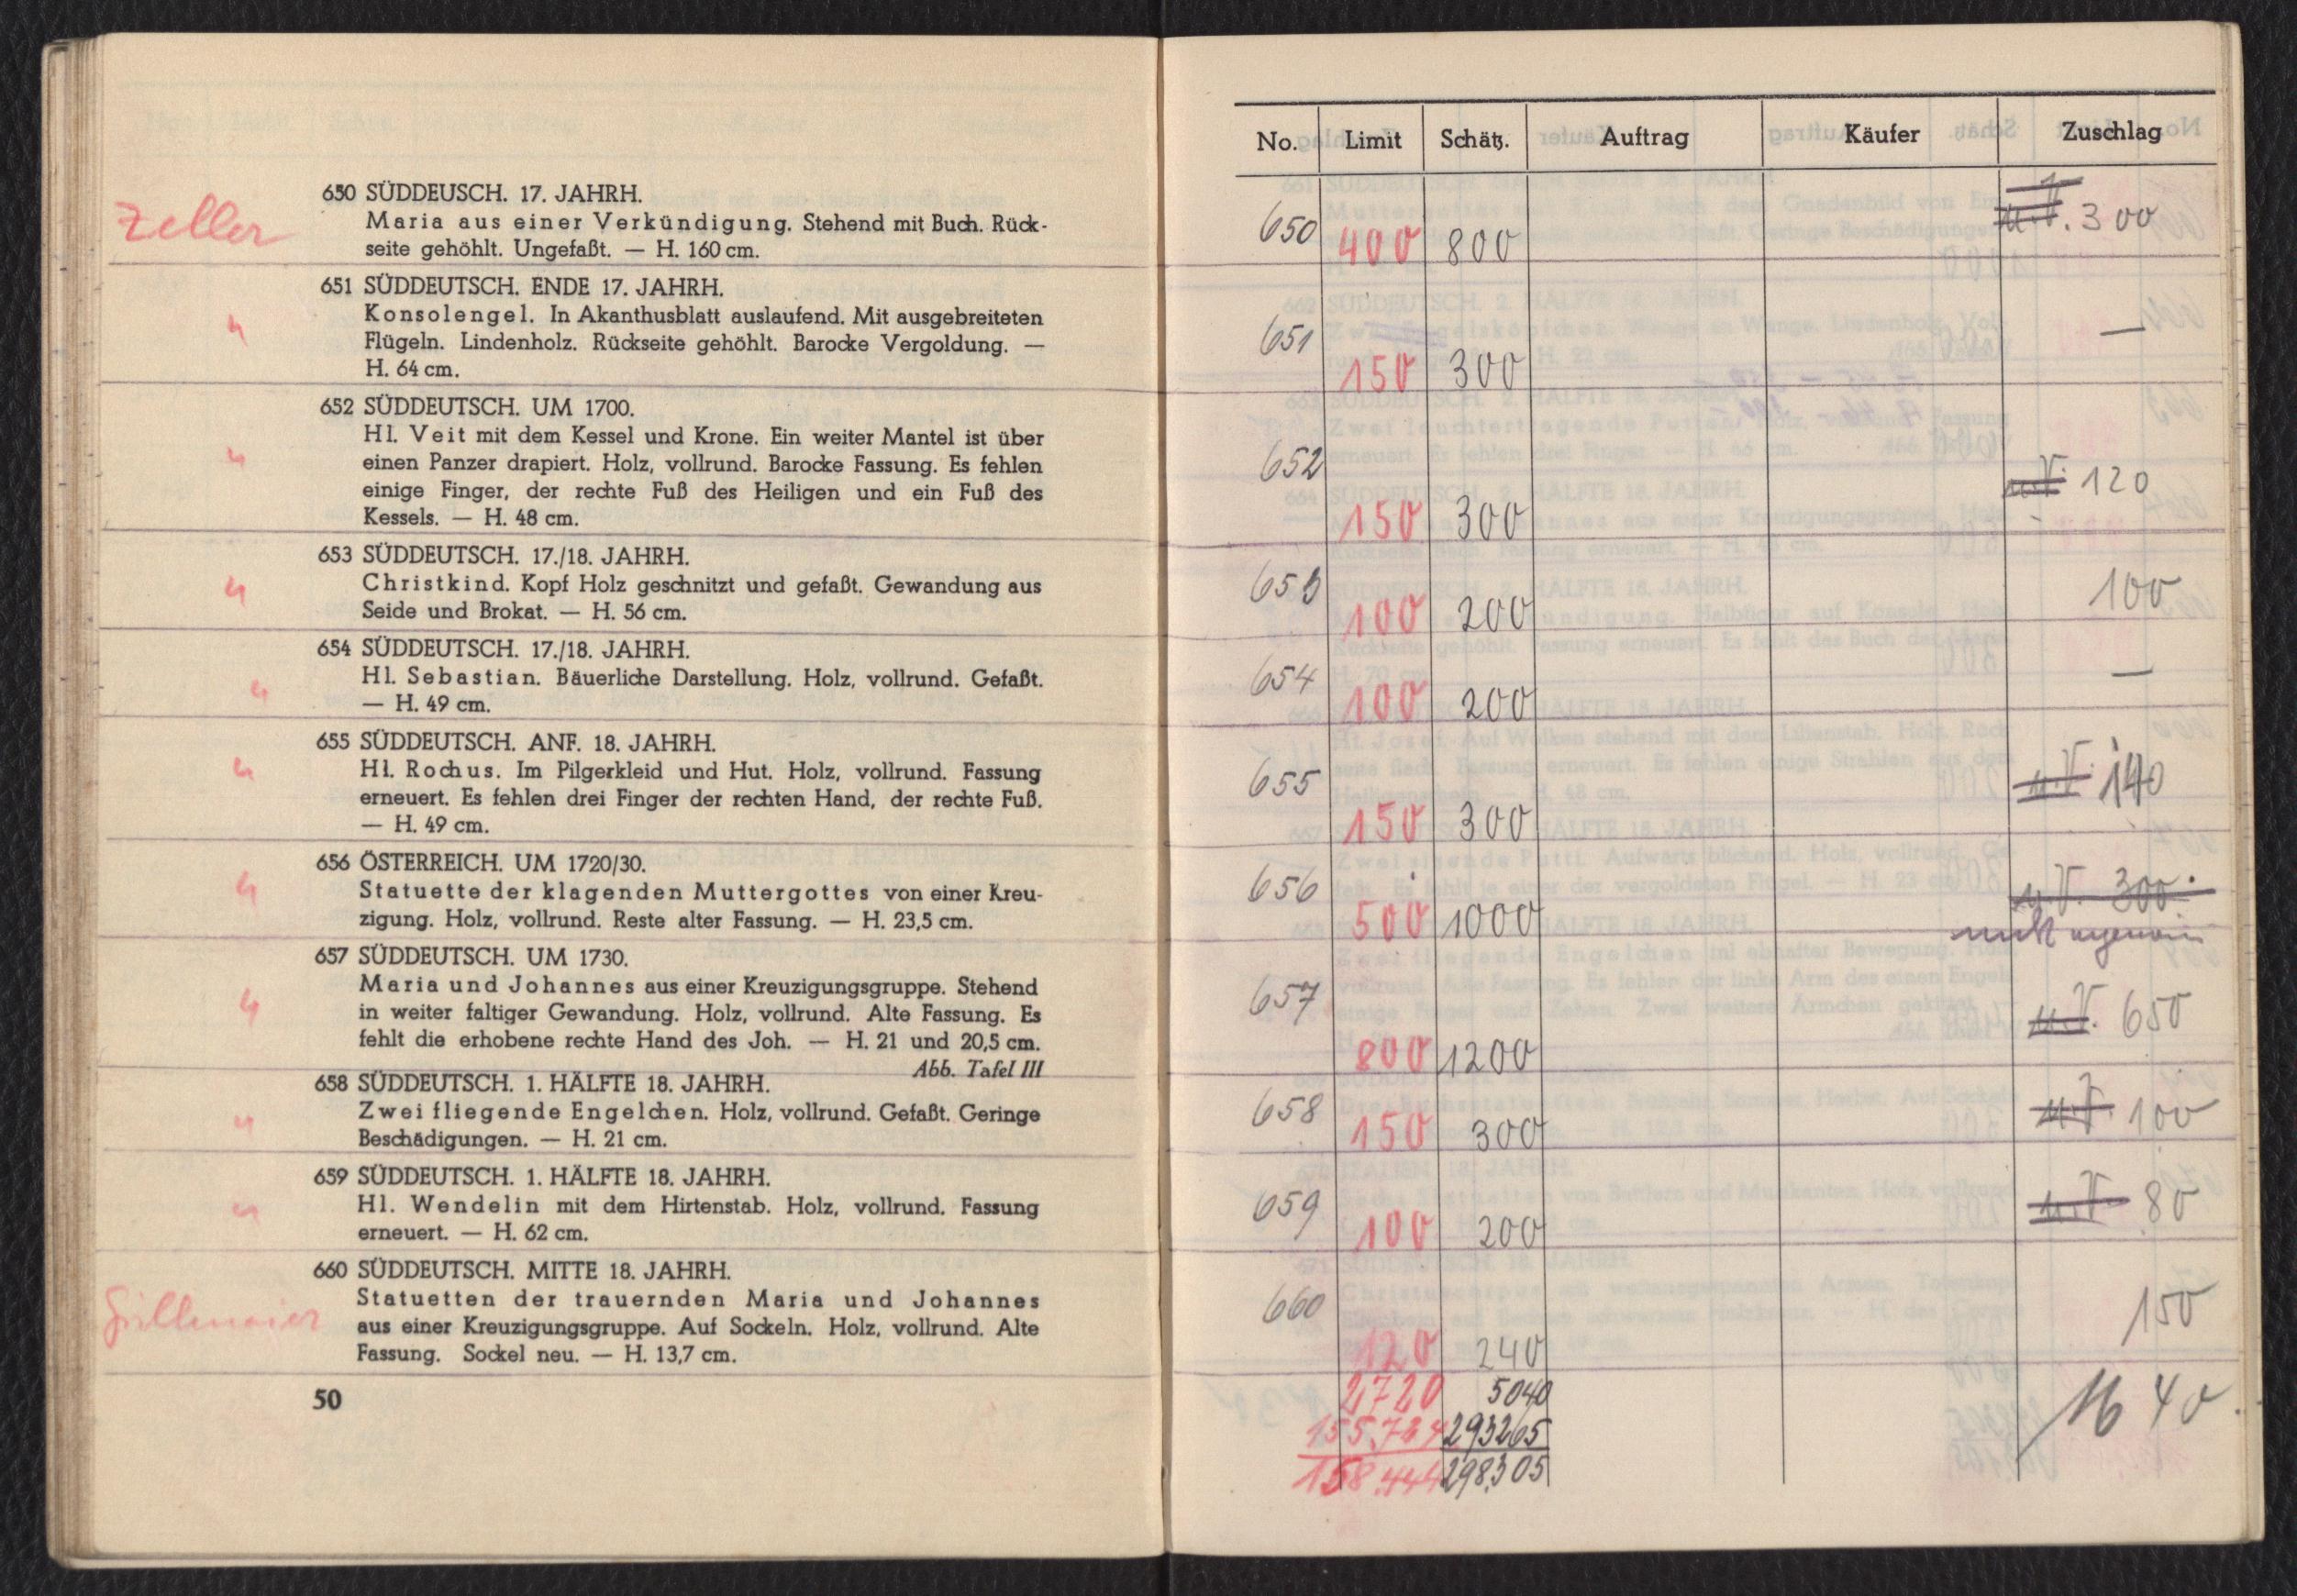 Zeller
650 SÜDDEUSCH. 17. JAHRH.
Maria aus einer Verkündigung. Stehend mit Buch. Rück-
seite gehöhlt. Ungefaßt. — H. 160 cm.
651 SÜDDEUTSCH. ENDE 17. JAHRH.
"
Konsolengel. In Akanthusblatt auslaufend. Mit ausgebreiteten
Flügeln. Lindenholz. Rückseite gehöhlt. Barocke Vergoldung. —
H. 64 cm.
652 SÜDDEUTSCH. UM 1700.
"
Hl. Veit mit dem Kessel und Krone. Ein weiter Mantel ist über
einen Panzer drapiert. Holz, vollrund. Barocke Fassung. Es fehlen
einige Finger, der rechte Fuß des Heiligen und ein Fuß des
Kessels. — H. 48 cm.
653 SÜDDEUTSCH. 17./18. JAHRH.
"
Christkind. Kopf Holz geschnitzt und gefaßt. Gewandung aus
Seide und Brokat. — H. 56 cm.
654 SÜDDEUTSCH. 17./18. JAHRH.
"
Hl. Sebastian. Bäuerliche Darstellung. Holz, vollrund. Gefaßt.
— H. 49 cm.
655 SÜDDEUTSCH. ANF. 18. JAHRH.
"
Hl. Rochus. Im Pilgerkleid und Hut. Holz, vollrund. Fassung
erneuert. Es fehlen drei Finger der rechten Hand, der rechte Fuß.
— H. 49 cm.
656 ÖSTERREICH. UM 1720/30.
"
Statuette der klagenden Muttergottes von einer Kreu-
zigung. Holz, vollrund. Reste alter Fassung. — H. 23,5 cm.
657 SÜDDEUTSCH. UM 1730.
"
Maria und Johannes aus einer Kreuzigungsgruppe. Stehend
in weiter faltiger Gewandung. Holz, vollrund. Alte Fassung. Es
fehlt die erhobene rechte Hand des Joh. — H. 21 und 20,5 cm.
Abb. Tafel III
658 SÜDDEUTSCH. 1. HÄLFTE 18. JAHRH.
"
Zwei fliegende Engelchen. Holz, vollrund. Gefaßt. Geringe
Beschädigungen. — H. 21 cm.
659 SÜDDEUTSCH. 1. HÄLFTE 18. JAHRH.
"
Hl. Wendelin mit dem Hirtenstab. Holz, vollrund. Fassung
erneuert. — H. 62 cm.
660 SÜDDEUTSCH. MITTE 18. JAHRH.
Statuetten der trauernden Maria und Johannes
aus einer Kreuzigungsgruppe. Auf Sockeln. Holz, vollrund. Alte
Fassung. Sockel neu. — H. 13,7 cm.
50
No. Limit Schätz. Auftrag Käufer Zuschlag
650 400 800 u.V. 300
651 150 300 —
652 150 300 u.V. 120
653 100 200 100
654 100 200 —
655 150 300 u.V. 140
656 500 1000 u.V. 300
657 800 1200 u.V. 650
658 150 300 u.V. 100
659 100 200 u.V. 80
660 120 240 150
2720 5040 1640
155.724 293265
158.444 298.305